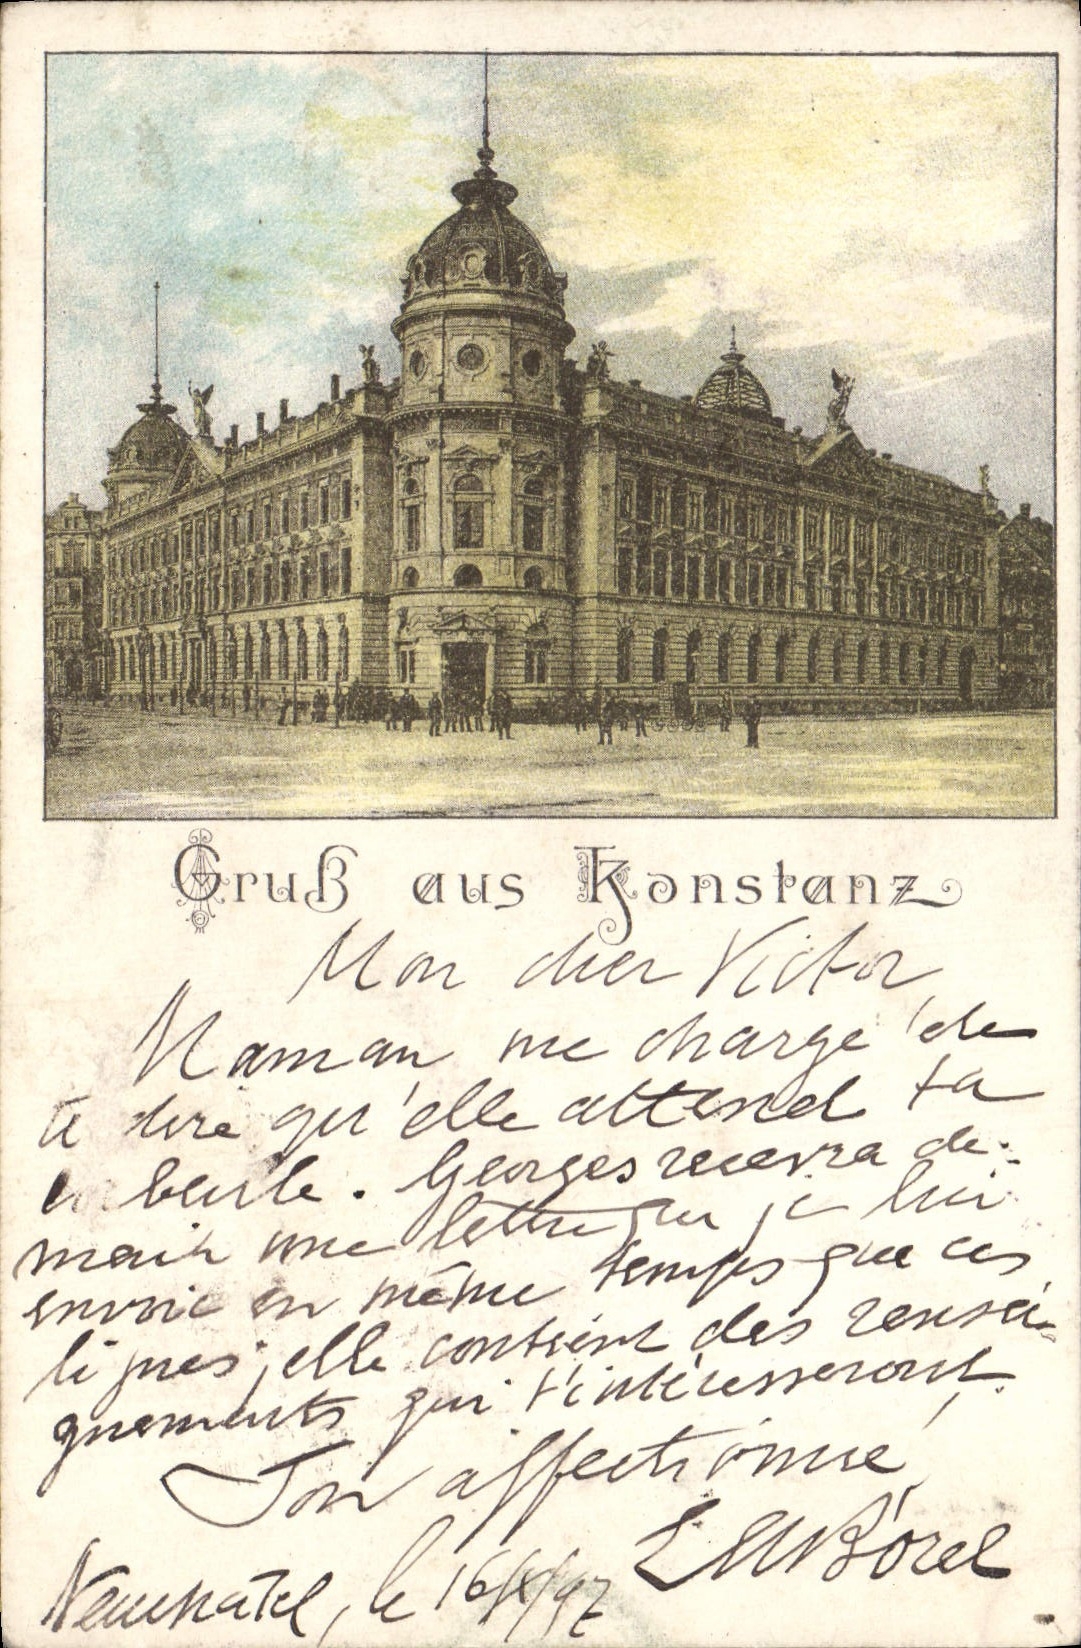 Gruß aus Konstanz
Mon cher Victor
Maman me charge de
te dire qu'elle attend ta
Georges recevra de-
main une lettre que je lui
envoie en même temps que ces
lignes; elle contient des rensei-
gnements qui t'intéresseront.
Ton affectionné
Borel
Neuchâtel, le 16/X/97